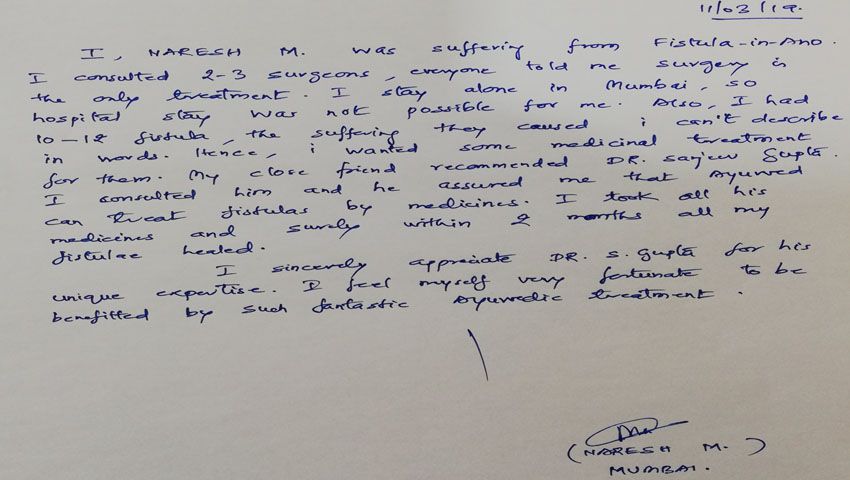 11/03/19.
I, NARESH M. was suffering from Fistula-in-Ano.
I consulted 2-3 surgeons, everyone told me surgery is
the only treatment. I stay alone in Mumbai, so
hospital stay was not possible for me. Also, I had
10-12 fistula, the suffering they caused i can't describe
in words. Hence, i wanted some medicinal treatment
for them. My close friend recommended DR. Sanjeev Gupta.
I consulted him and he assured me that Ayurved
can treat fistulas by medicines. I took all his
medicines and surely within 2 months all my
fistulae healed.
I sincerely appreciate DR. S. Gupta for his
unique expertise. I feel myself very fortunate to be
benefitted by such fantastic Ayurvedic treatment.
(NARESH M.)
MUMBAI.